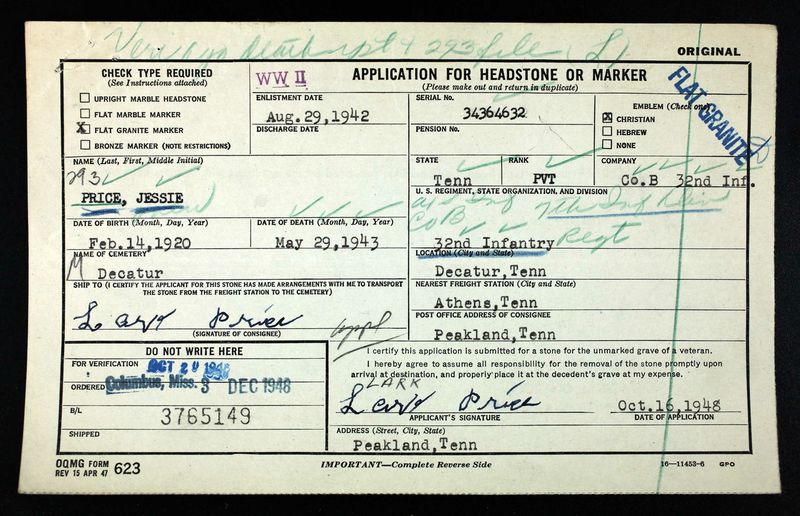 Verify death rpt & 293 file (L)
ORIGINAL
CHECK TYPE REQUIRED
(See Instructions attached)
WW II
APPLICATION FOR HEADSTONE OR MARKER
(Please make out and return in duplicate)
FLAT GRANITE
UPRIGHT MARBLE HEADSTONE
FLAT MARBLE MARKER
X FLAT GRANITE MARKER
BRONZE MARKER (NOTE RESTRICTIONS)
ENLISTMENT DATE
Aug.29,1942
DISCHARGE DATE
SERIAL No.
34364632
PENSION No.
EMBLEM (Check one)
X CHRISTIAN
HEBREW
NONE
NAME (Last, First, Middle Initial)
293
PRICE, JESSIE
STATE
Tenn
RANK
PVT
COMPANY
Co.B 32nd Inf.
U. S. REGIMENT, STATE ORGANIZATION, AND DIVISION
Co B 7th Inf Divn
32nd Infantry Regt
DATE OF BIRTH (Month, Day, Year)
Feb.14,1920
DATE OF DEATH (Month, Day, Year)
May 29,1943
NAME OF CEMETERY
M Decatur
LOCATION (City and State)
Decatur,Tenn
SHIP TO (I CERTIFY THE APPLICANT FOR THIS STONE HAS MADE ARRANGEMENTS WITH ME TO TRANSPORT
THE STONE FROM THE FREIGHT STATION TO THE CEMETERY)
NEAREST FREIGHT STATION (City and State)
Athens,Tenn
Lark Price
(SIGNATURE OF CONSIGNEE)
appl
POST OFFICE ADDRESS OF CONSIGNEE
Peakland,Tenn
DO NOT WRITE HERE
FOR VERIFICATION OCT 20 1948
ORDERED Columbus, Miss. 3 DEC 1948
B/L
3765149
SHIPPED
I certify this application is submitted for a stone for the unmarked grave of a veteran.
I hereby agree to assume all responsibility for the removal of the stone promptly upon
arrival at destination, and properly place it at the decedent's grave at my expense.
LARK
Lark Price
APPLICANT'S SIGNATURE
Oct.16,1948
DATE OF APPLICATION
ADDRESS (Street, City, State)
Peakland,Tenn
OQMG FORM
REV 15 APR 47 623
IMPORTANT—Complete Reverse Side
16—11453-6 GPO